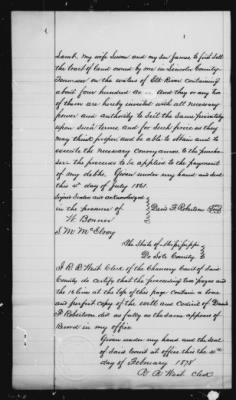 Lamb, my wife Susan and my son James to first sell
the tract of land owned by me in Lincoln County
Tennessee on the waters of Elk River containing
about four hundred ac — And they or any two
of them are hereby invested with all necessary
power and authority to sell the same privately
upon such terms and for such price as they
may think proper and be able to obtain and to
execute the necessary conveyance to the purcha-
ser the proceeds to be applied to the payment
of my debts. Given under my hand and seal
this day of July 1861.
Signed Sealed and acknowledged
in the presence of David F Robertson Seal
W. Bonner
S. M. McElroy
The State of Mississippi
De Soto County
I R. R. West Clerk of the Chancery Court of said
County do certify that the preceeding two pages and
the 16 lines at the top of this page contain a true
and perfect copy of the will and Codicil of David
F Robertson dcd as fully as the same appears of
Record in my office
Given under my hand and the seal
of said Court at office this the
day of February 1878
R. R. West Clk